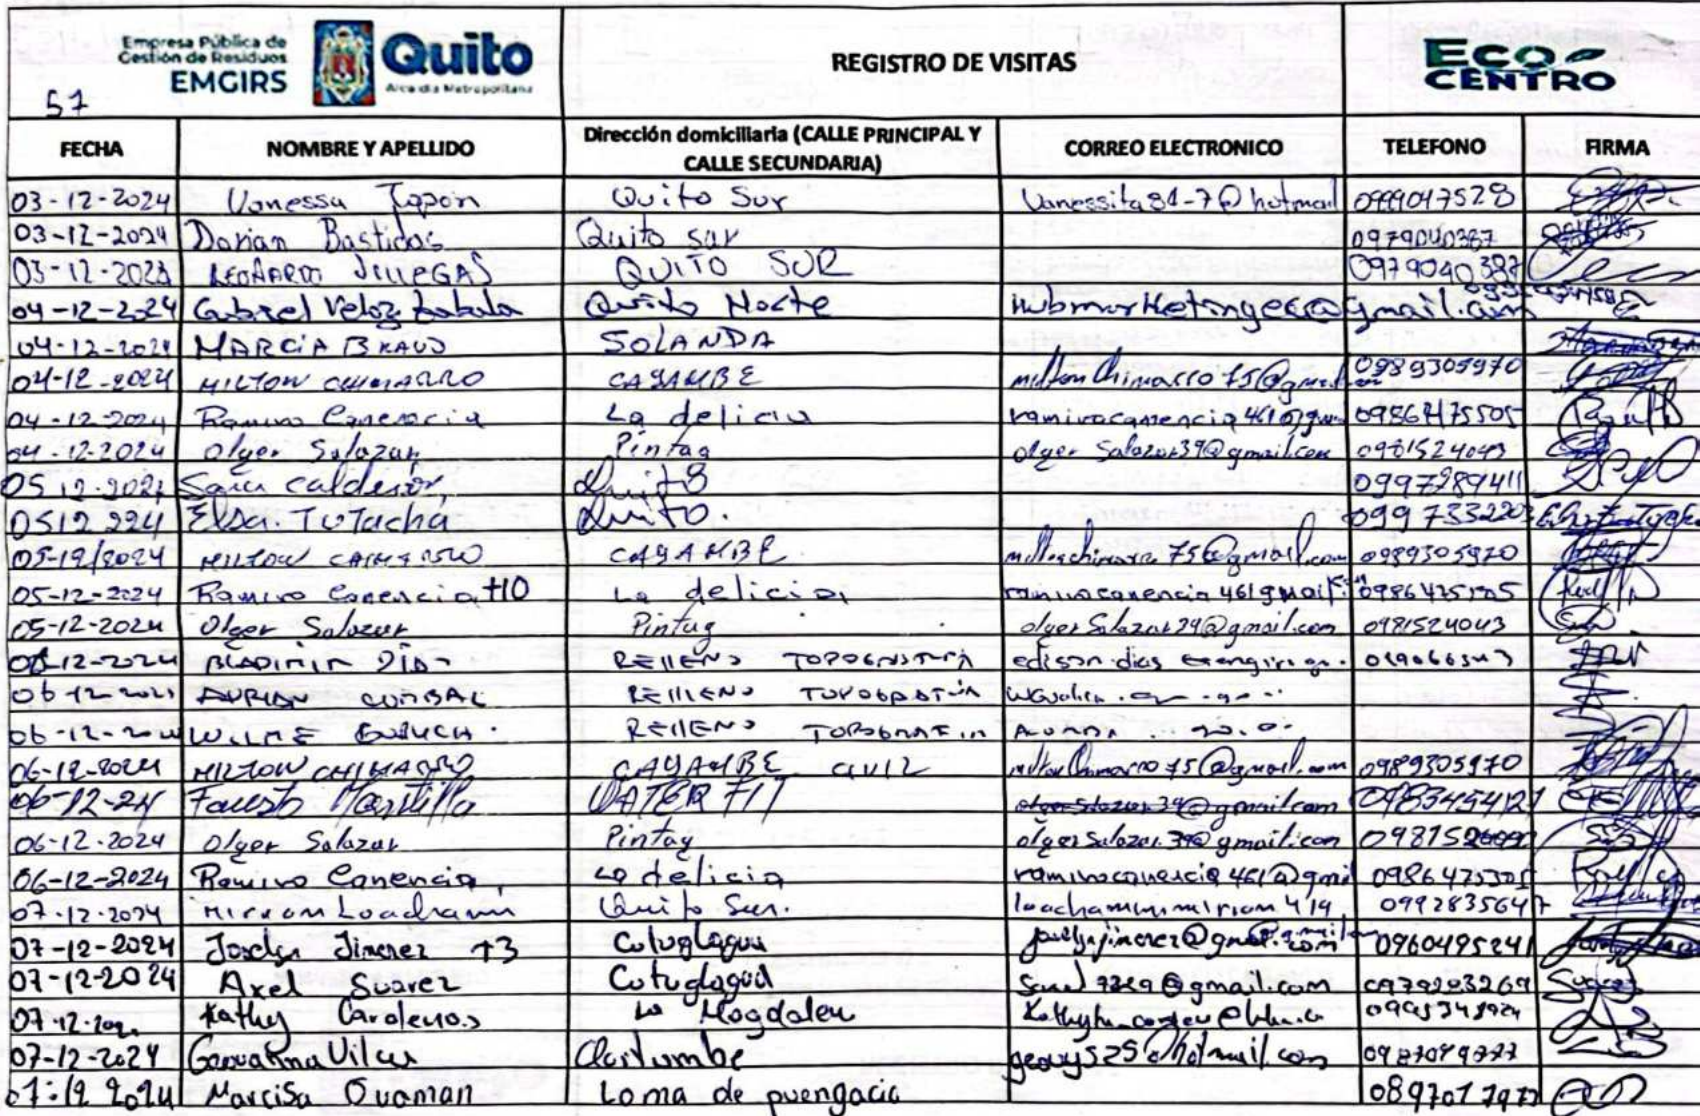 Empresa Pública de
Gestión de Residuos
EMGIRS
Quito
Alcaldía Metropolitana
REGISTRO DE VISITAS
ECO CENTRO
57
FECHA NOMBRE Y APELLIDO Dirección domiciliaria (CALLE PRINCIPAL Y CALLE SECUNDARIA) CORREO ELECTRONICO TELEFONO FIRMA
03-12-2024 Vanessa Tapon Quito Sur Vanessita81-7@hotmail
03-12-2024 Dorian Bastidas Quito sur 0979040387
03-12-2024 LEONARDO VILLEGAS QUITO SUR 0979040387
04-12-2024 Gabriel Veloz Zabala Quito Norte hubmarketingec@gmail.com
04-12-2024 MARCIA BRAVO SOLANDA
04-12-2024 MILTON CHIMARRO CAYAMBE miltonchimarro75@gmail.com 0989305970
04-12-2024 Ramiro Canencia La delicia ramirocanencia461@gmai 0986475505
04-12-2024 Olger Salazar Pintag olger Salazar39@gmail.com 0981524043
05 12-2024 Sara Calderón Quito 0997289411
0512 224 Elsa. Tutacha Quito. 0997332203
05-12/2024 MILTON CHIMARRO CAYAMBE miltonchimarro75@gmail.com 0989305970
05-12-2024 Ramiro Canencia +10 La delicia ramirocanencia461gmail
05-12-2024 Olger Salazar Pintag olger Salazar39@gmail.com 0981524043
06-12-2024 BLADIMIR DÍA RELLENO TOPOGRAFÍA
06-12-2024 RELLENO TOPOGRAFÍA
06-12-2024 RELLENO TOPOGRAFIA
06-12-2024 MILTON CHIMARRO CAYAMBE CIVIL miltonchimarro75@gmail.com 0989305970
06-12-24 Fausto Mantilla WATER FIT olger Salazar 39@gmail.com
06-12-2024 Olger Salazar Pintag olger Salazar.39@gmail.com
06-12-2024 Ramiro Canencia, La delicia ramirocanencia461@gmail
07-12-2024 Miriam Loachamin Quito Sur. loachaminmiriam419 0992835647
07-12-2024 Joselyn Jimenez +3 Cutuglagua joselynjimenez@gmail.com 0960495241
07-12-2024 Axel Suarez Cutuglagua 7329@gmail.com 0979283269
07-12-202 Kathy Cardenas La Magdalen
07-12-2024 Geovanna Vilca Chillumbe geovys25@hotmail.com
07-12 2024 Marcisa Guaman Loma de puengacia